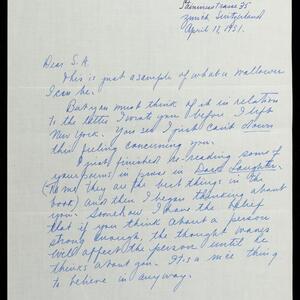 35
Zurich, Switzerland
April 17, 1951.
Dear S.A.
This is just a sample of what a wallower
I can be.
But you must think of it in relation
to the letter I wrote you before I left
New York. You see I just can't down
this feeling concerning you.
I just finished re-reading some of
your poems in prose in Dark Laughter
(To me they are the best things in the
book) and then I began thinking about
you. Somehow I have the belief
that if you think about a person
strong enough, the thought waves
will affect the person until he
thinks about you. It is a nice thing
to believe in anyway.